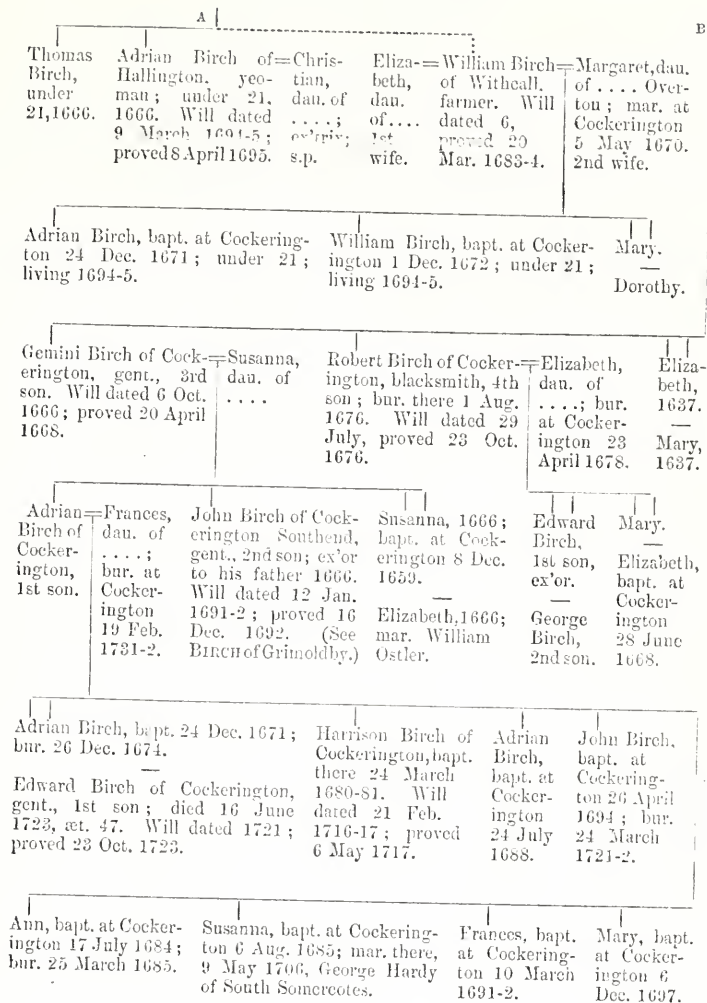 A
B
Thomas
Birch,
under
21, 1666.
Adrian Birch of
Hallington. yeo-
man; under 21,
1666. Will dated
9 March 1694-5;
proved 8 April 1695.
=Chris-
tian,
dau. of
. . . . ;
ex'trix;
s.p.
Eliza-
beth,
dau.
of . . . .
1st
wife.
=William Birch=
of Withcall.
farmer. Will
dated 6,
proved 20
Mar. 1683-4.
Margaret, dau.
of . . . . Over-
ton; mar. at
Cockerington
5 May 1670.
2nd wife.
Adrian Birch, bapt. at Cockering-
ton 24 Dec. 1671; under 21;
living 1694-5.
William Birch, bapt. at Cocker-
ington 1 Dec. 1672; under 21;
living 1694-5.
Mary.
—
Dorothy.
Gemini Birch of Cock-
erington, gent., 3rd
son. Will dated 6 Oct.
1666; proved 20 April
1668.
=Susanna,
dau. of
. . . .
Robert Birch of Cocker-
ington, blacksmith, 4th
son; bur. there 1 Aug.
1676. Will dated 29
July, proved 23 Oct.
1676.
=Elizabeth,
dau. of
. . . .; bur.
at Cocker-
ington 23
April 1678.
Eliza-
beth,
1637.
—
Mary,
1637.
Adrian
Birch of
Cocker-
ington,
1st son.
=Frances,
dau. of
. . . . ;
bur. at
Cocker-
ington
19 Feb.
1731-2.
John Birch of Cock-
erington Southend,
gent., 2nd son; ex'or
to his father 1666.
Will dated 12 Jan.
1691-2; proved 16
Dec. 1692. (See
BIRCH of Grimoldby.)
Susanna, 1666;
bapt. at Cock-
erington 8 Dec.
1659.
—
Elizabeth, 1666;
mar. William
Ostler.
Edward
Birch,
1st son,
ex'or.
—
George
Birch,
2nd son.
Mary.
—
Elizabeth,
bapt. at
Cocker-
ington
28 June
1668.
Adrian Birch, bapt. 24 Dec. 1671;
bur. 26 Dec. 1674.
—
Edward Birch of Cockerington,
gent., 1st son; died 16 June
1723, æt. 47. Will dated 1721;
proved 23 Oct. 1723.
Harrison Birch of
Cockerington, bapt.
there 24 March
1680-81. Will
dated 21 Feb.
1716-17; proved
6 May 1717.
Adrian
Birch,
bapt. at
Cocker-
ington
24 July
1688.
John Birch,
bapt. at
Cockering-
ton 26 April
1694; bur.
24 March
1721-2.
Ann, bapt. at Cocker-
ington 17 July 1684;
bur. 25 March 1685.
Susanna, bapt. at Cockering-
ton 6 Aug. 1685; mar. there,
9 May 1706, George Hardy
of South Somercotes.
Frances, bapt.
at Cockering-
ton 10 March
1691-2.
Mary, bapt.
at Cocker-
ington 6
Dec. 1697.